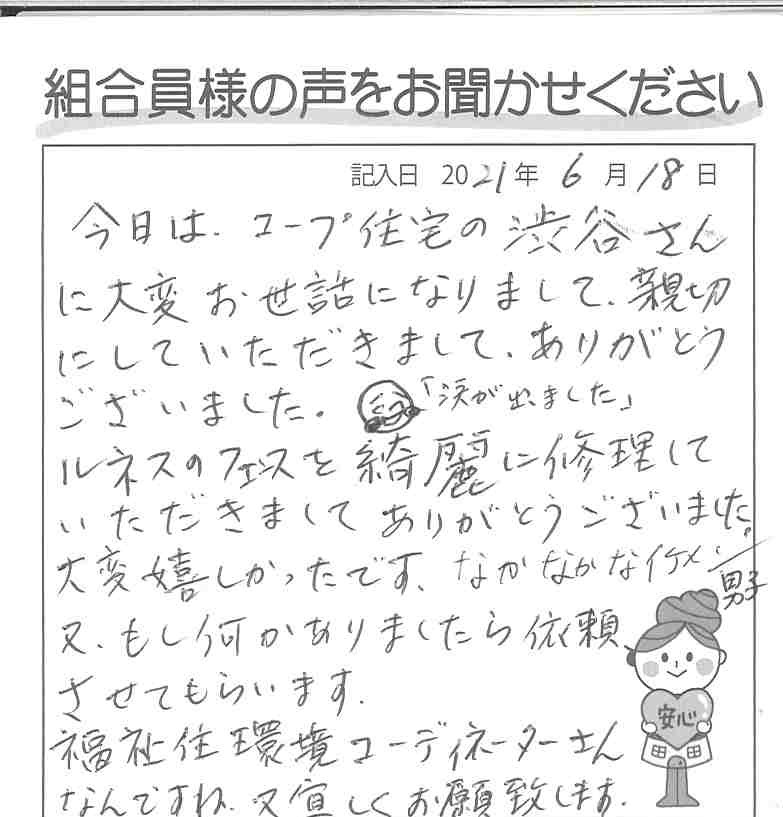 組合員様の声をお聞かせください
記入日 2021年 6月18日
今日は、コープ住宅の渋谷さん
に大変お世話になりまして、親切
にしていただきまして、ありがとう
ございました。「涙が出ました」
ルネスのフェンスを綺麗に修理して
いただきましてありがとうございました。
大変嬉しかったです、なかなかなイケメン
男子
又、もし何かありましたら依頼
させてもらいます。
安心
福祉住環境コーディネーターさん
なんですね、又宜しくお願致します。